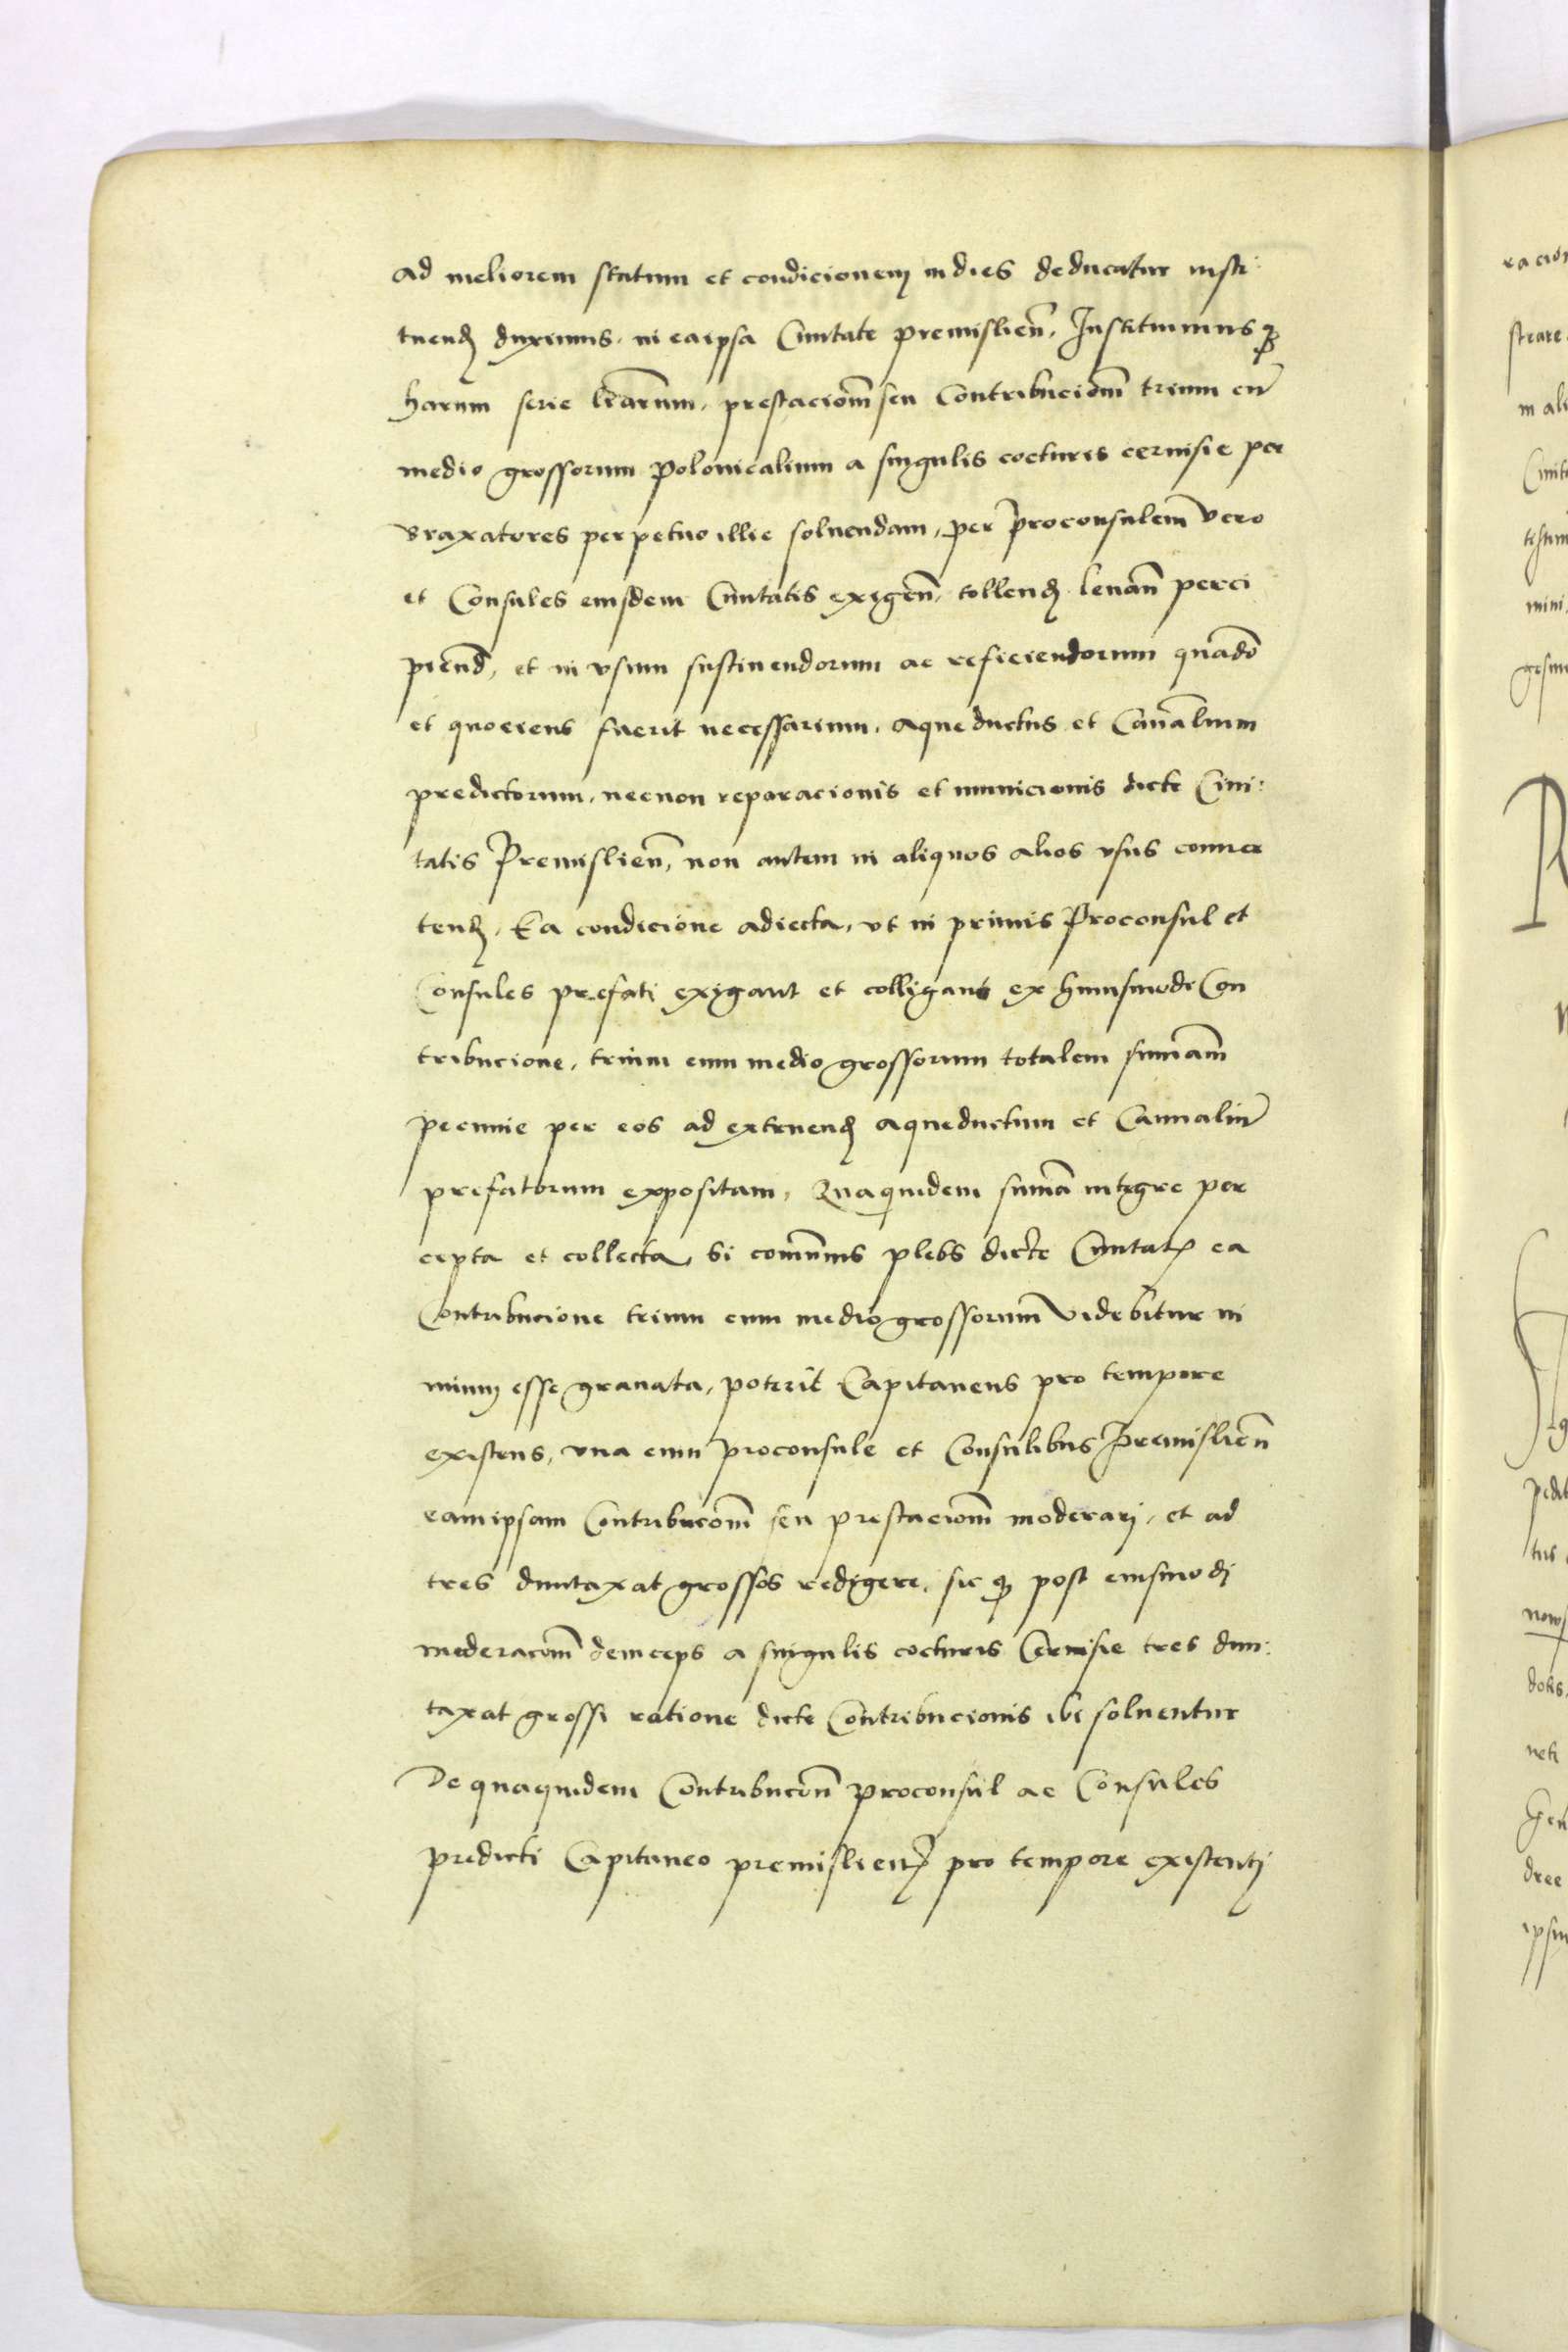 ad meliorem statum et condicionem indies deducatur insti:
tuend duximus. in eaipsa Ciuitate premislien̄. Instituimusq̃
harum serie l̃rarum, prestacionem̄ seu Contribucionem̄ trium cū
medio grossorum polonicalium a singulis cocturis ceruisie per
braxatores perpetuo illic soluendam, per proconsulem̄ vero
et Consules eiusdem Ciuitatis exigen̄. tollend leuan̄ perci
piend̄, et in vsum sustinendorum ac reficiendorum quādo
et quociens fuerit necessarium. aqueductus et Canalium
predictorum, necnon reparacionis et municionis dicte Ciui:
tatis Premislien̄, non autem in aliquos alios vsus conuer
tend, Ea condicione adiecta, vt in primis Proconsul et
Consules prefati exigant et colligant ex huiusmodi Con
tribucione, trium cum medio grossorum totalem sum̄am
pecunie per eos ad extruend aqueductum et Cannaliū
prefatorum expositam, Quaquidem sum̄a integre per
cepta et collecta, si com̄unis plebs dicte Ciuitatis ea
Contribucione trium cum medio grossorum videbitur ni
mium esse grauata, poterit Capitaneus pro tempore
existens, vna cum proconsule et Consulibus Premislien̄
eamipsam Contribucom̄ seu prestaciom̄ moderari, et ad
tres duntaxat grossos redigere, sic q̃ post eiusmodi
moderacom̄ deinceps a singulis cocturis Ceruisie tres dun:
taxat grossi ratione dicte Contribucionis ibi soluentur
De quaquidem Contribucōn proconsul ac Consules
predicti Capitaneo premislien̄ pro tempore existenti